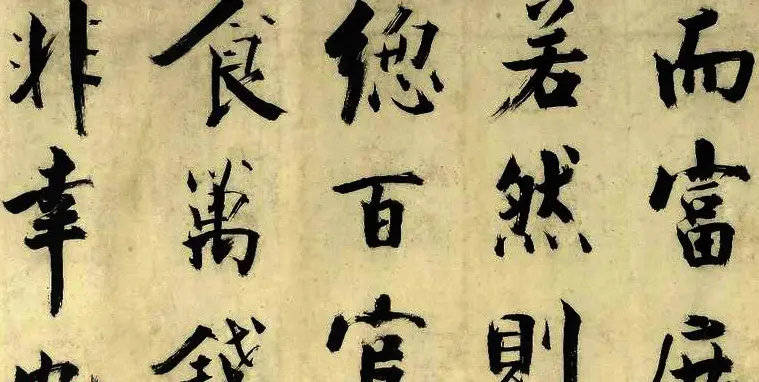 而富
若然則
總百官
食萬錢
非幸